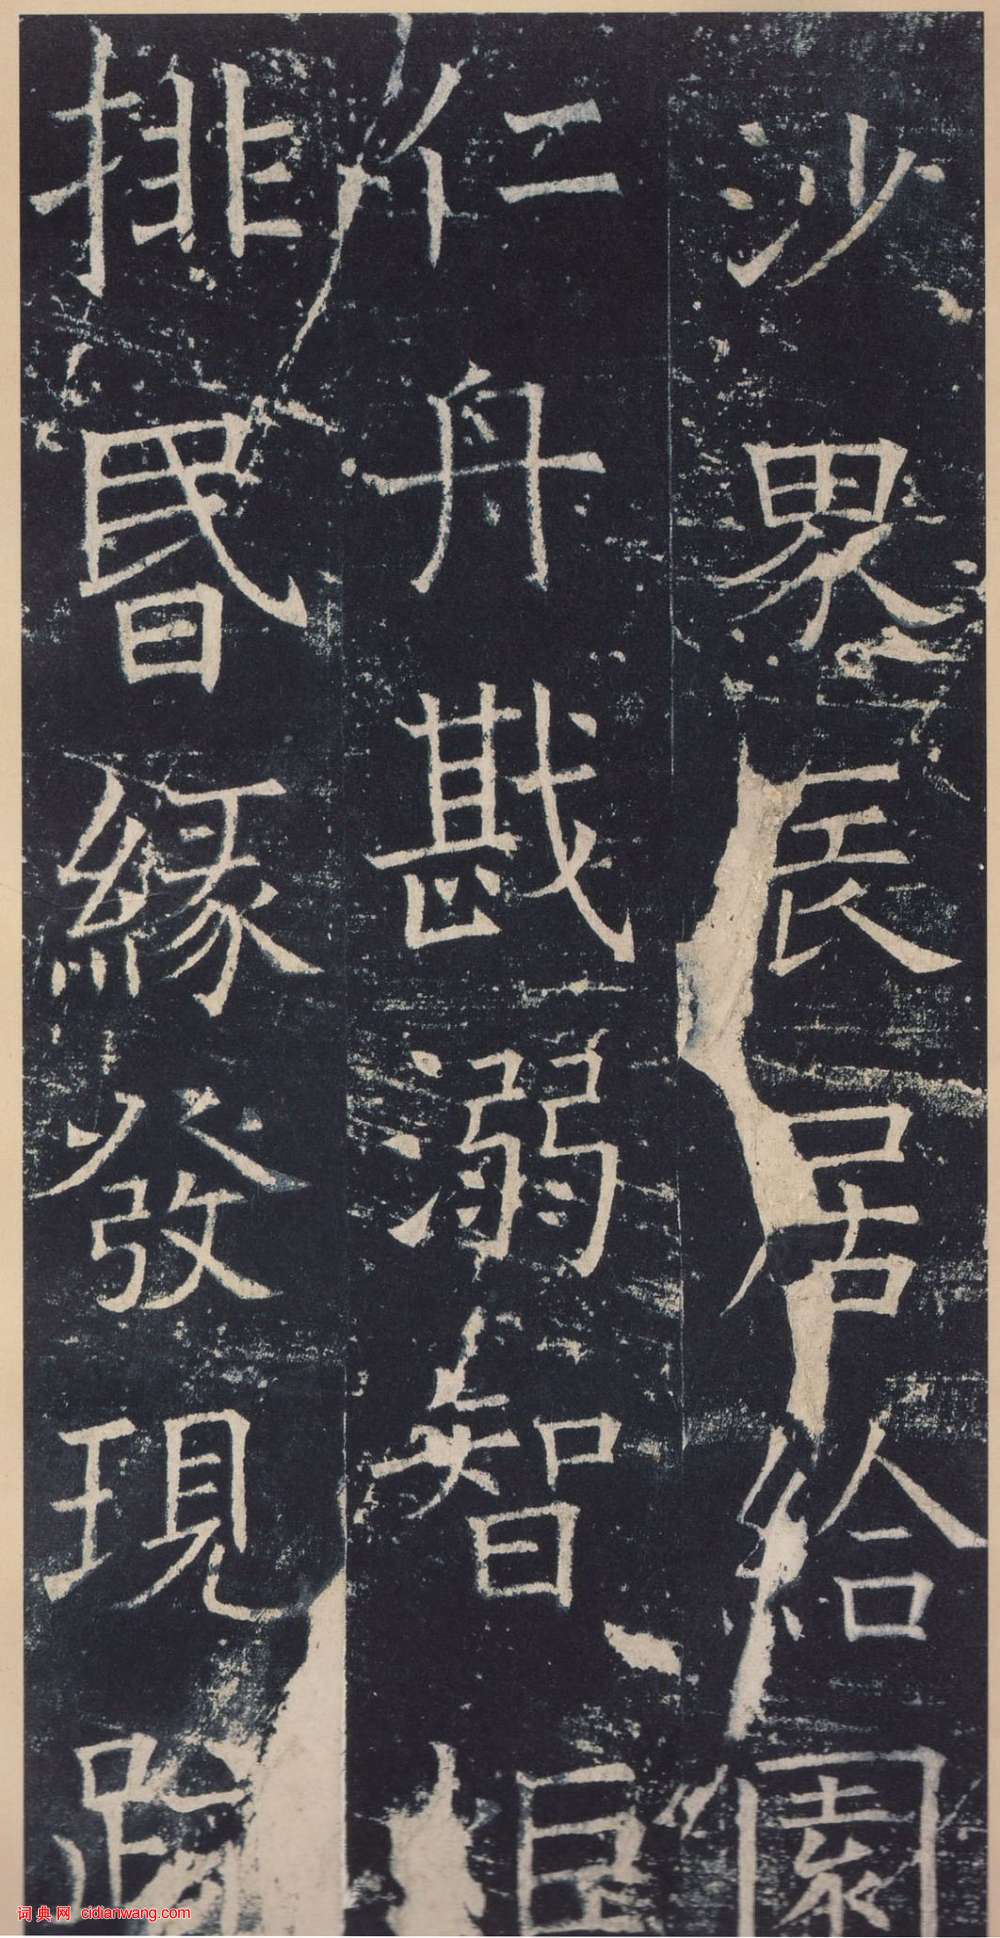 沙界辰居給園
仁舟戡溺智炬
排昬緣發現歸
词典网 cidianwang.com